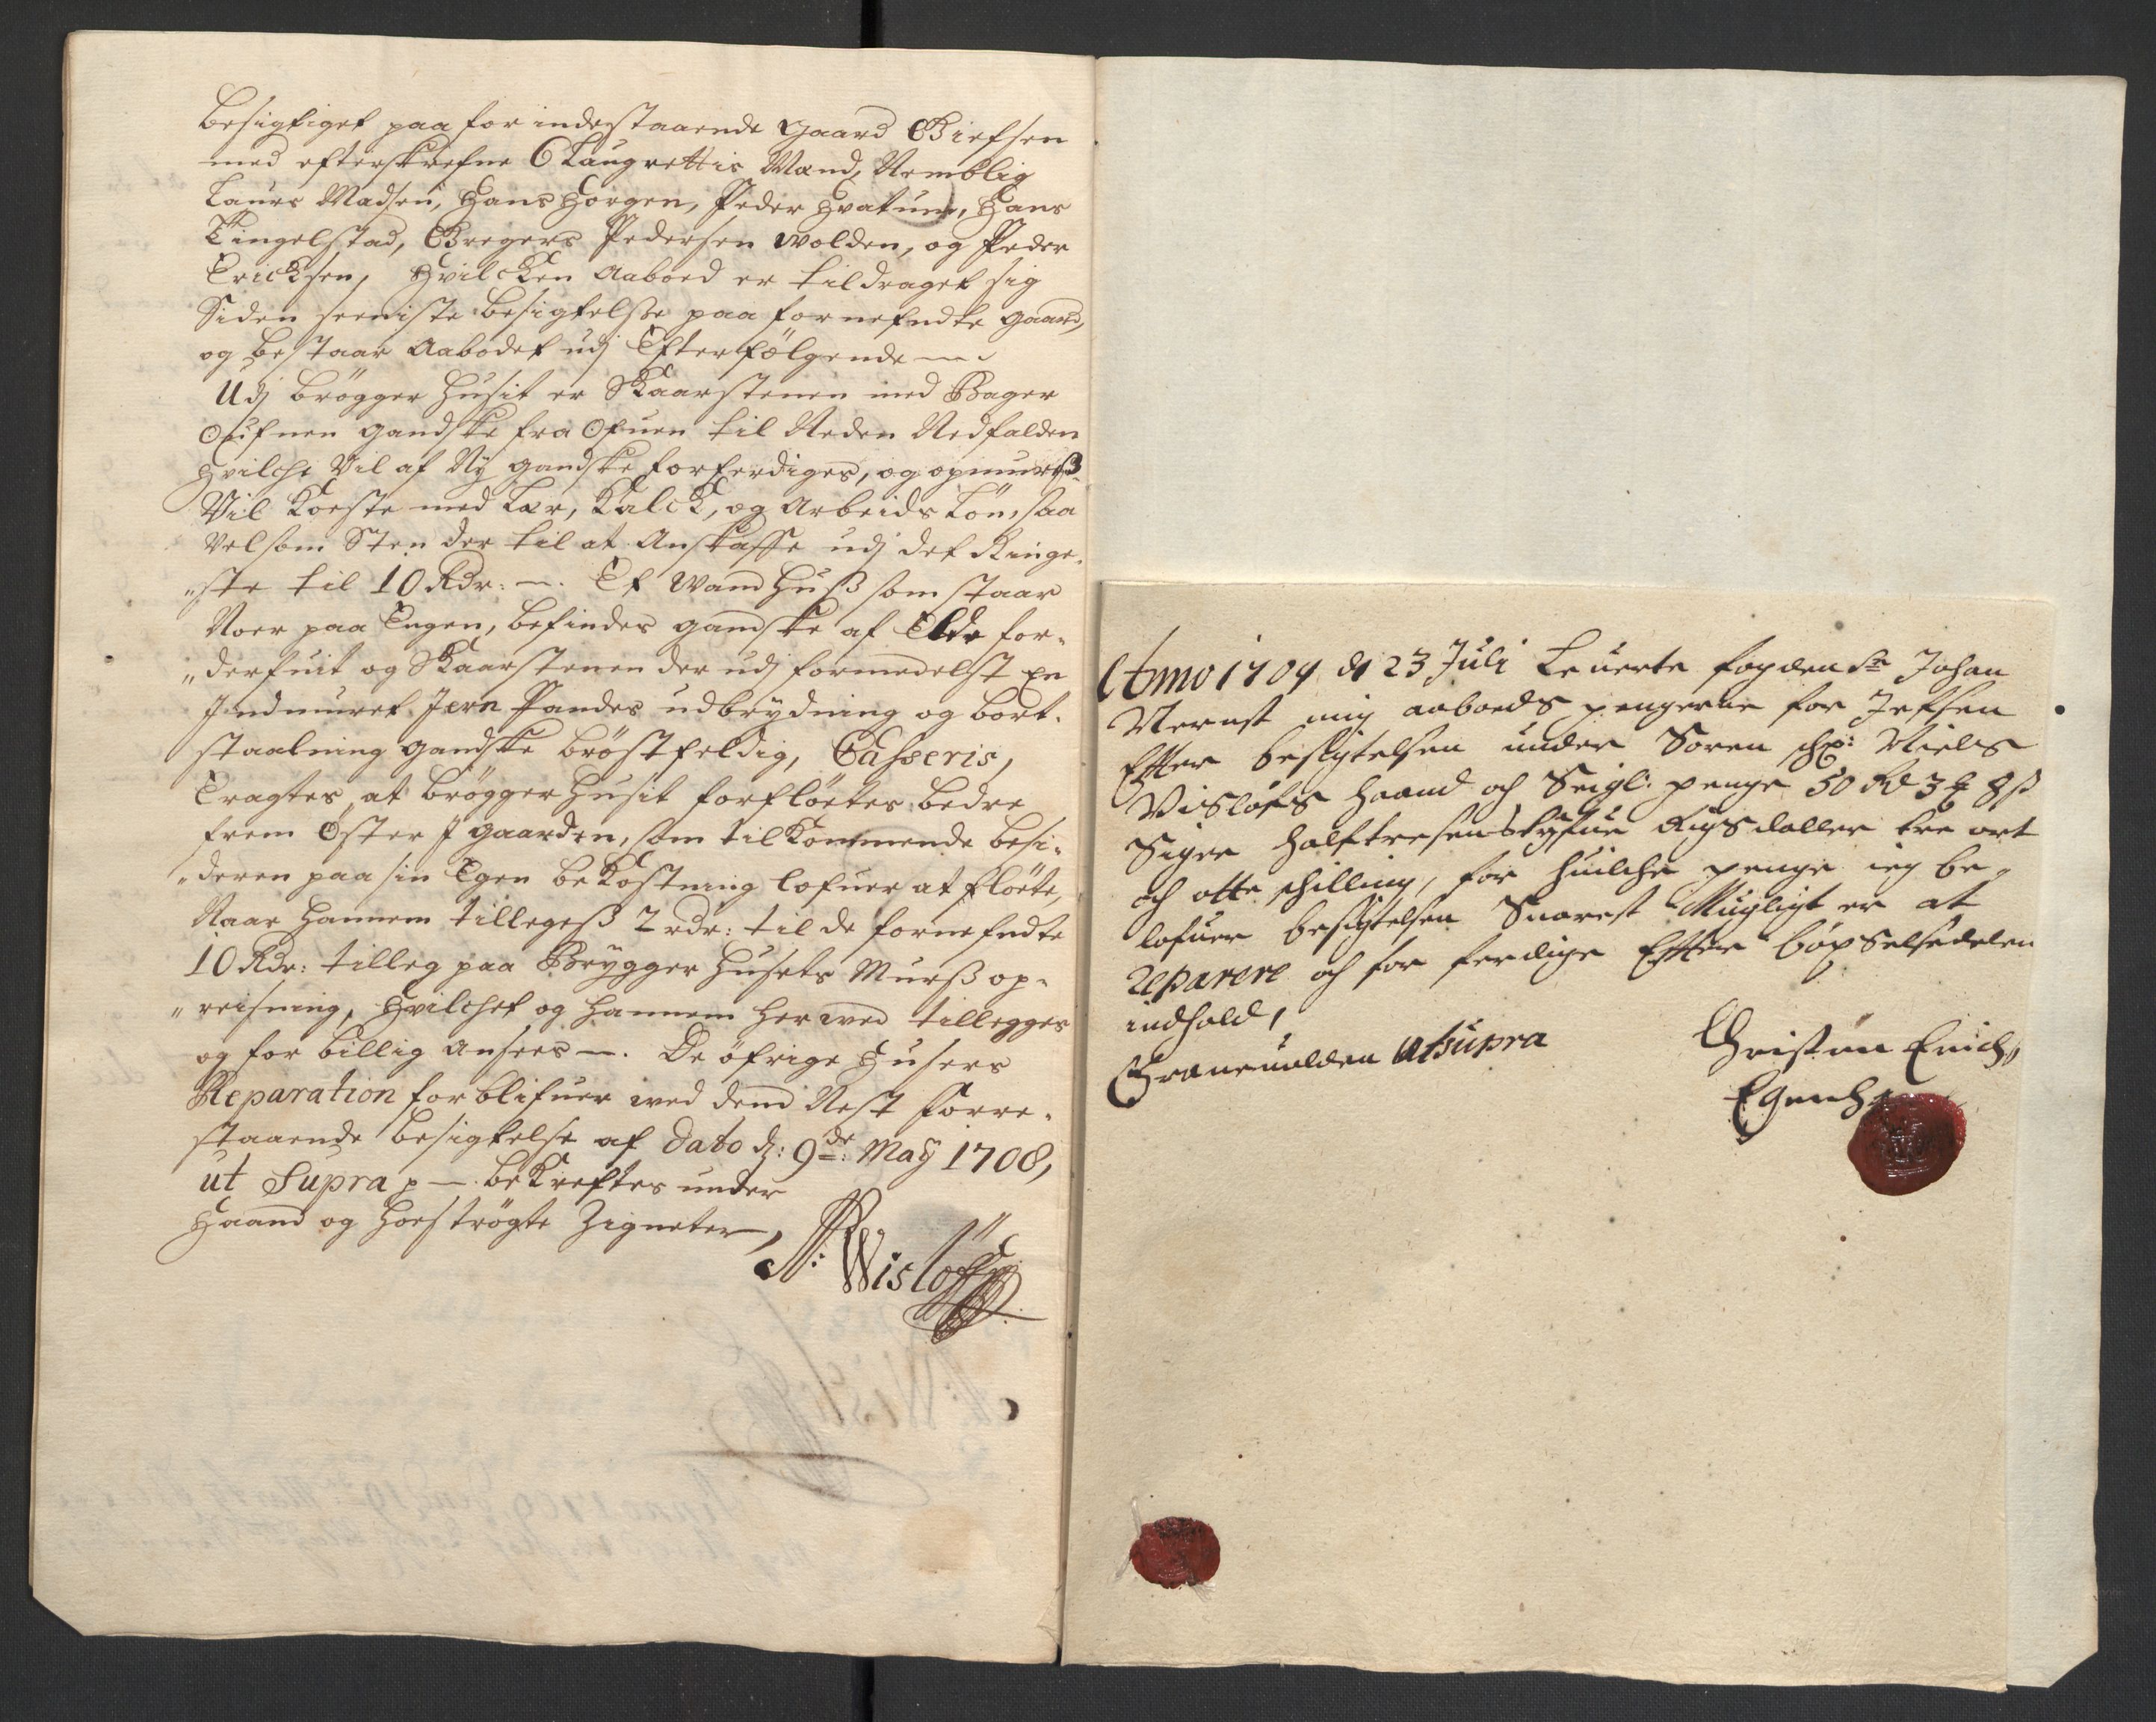 besigtiget paa for indestaaende gaard Giefsen
med efterskrefne 6 Laugrettis Mænd, Nemblig
Laurs Madsen, Hans Horgen, Peder Hvatum, Hans
Tingelstad, Gregers Pedersen Wolden, og Peder
Ericksen, Hvilcken Aaboed er tildraget sig
Siden seeniste besigtelse paa fornefndte gaard,
og bestaar Aabodet udj Efterfølgende —
Udj brøgger Husit er Skaarstenen med Bager
Oufnen gandske fra Ofuen til Neden Nedfalden
Hvilche Vil af Ny gandske forferdiges, og opmuris
Vil Koeste med Leer, Kalck, og Arbeids Løn, saa
Vel som Sten der til at Anskaffe udj det Ringe,
„ste til 10 Rdr: —. Et Wand Huß som staar
Noer paa Engen, befindes gandske af Elde for-
„derfuit og Skaarstenen der udj formedelst En
Indmuret Jern Pandes udbrydning og bort-
staalning gandske brøstfeldig, Casseris,
Eragtes at brøgger Husit forfløttes bedre
frem Øster i gaarden, som tilkommende besi-
„deren paa sin Egen bekostning lofuer at fløtte,
Naar hannem tillegeß 2 rdr: til de fornefndte
10 Rdr: tilleg paa Brygger Husets Murß op-
„reisning, Hvilchet og hannem her wed tillegges
og for billig ansees —. De øfrige Husers
Reparation forblifuer wed dend Nest forre-
staaende besigtelse af Dato d: 9de: May 1708,
ut Supra p —. bekreftes under
Haand og hoestrøgte Zigneter,
N: Wisløff
Anno 1709 d 23 Juli Leuerte fogden Sr Johan
Mernst mig aaboeds pengerne for Jefsen
Efter besigtelsen under Soren Niels
Visløfs Haand och Seigl. penge 50 Rd 3 8 ß
Siger halftresenstyfue Rigsdaller tre ort
och otte schilling, for huilche penge ieg be-
lofuer besigtelsen Snarest Mugligt er at
reparere och for ferdige Efter bøgselsedelen
indhold,
Graneuolden ut supra
Christen Erichs
Egenh